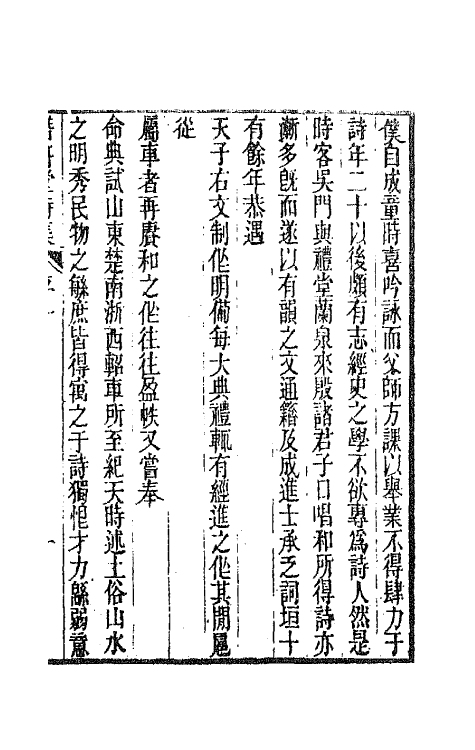 僕自成童時喜吟詠而父師方課以舉業不得肆力于
詩年二十以後頗有志經史之學不欲專爲詩人然是
時客吳門與禮堂蘭泉來殷諸君子日唱和所得詩亦
漸多旣而遂以有韻之文通籍及成進士承乏詞垣十
有餘年恭遇
天子右文制作明備每大典禮輒有經進之作其間扈
從
屬車者再賡和之作往往盈帙又嘗奉
命典試山東楚南浙西軺車所至紀天時述土俗山水
之明秀民物之緐庶皆得寓之于詩獨愧才力緜弱意